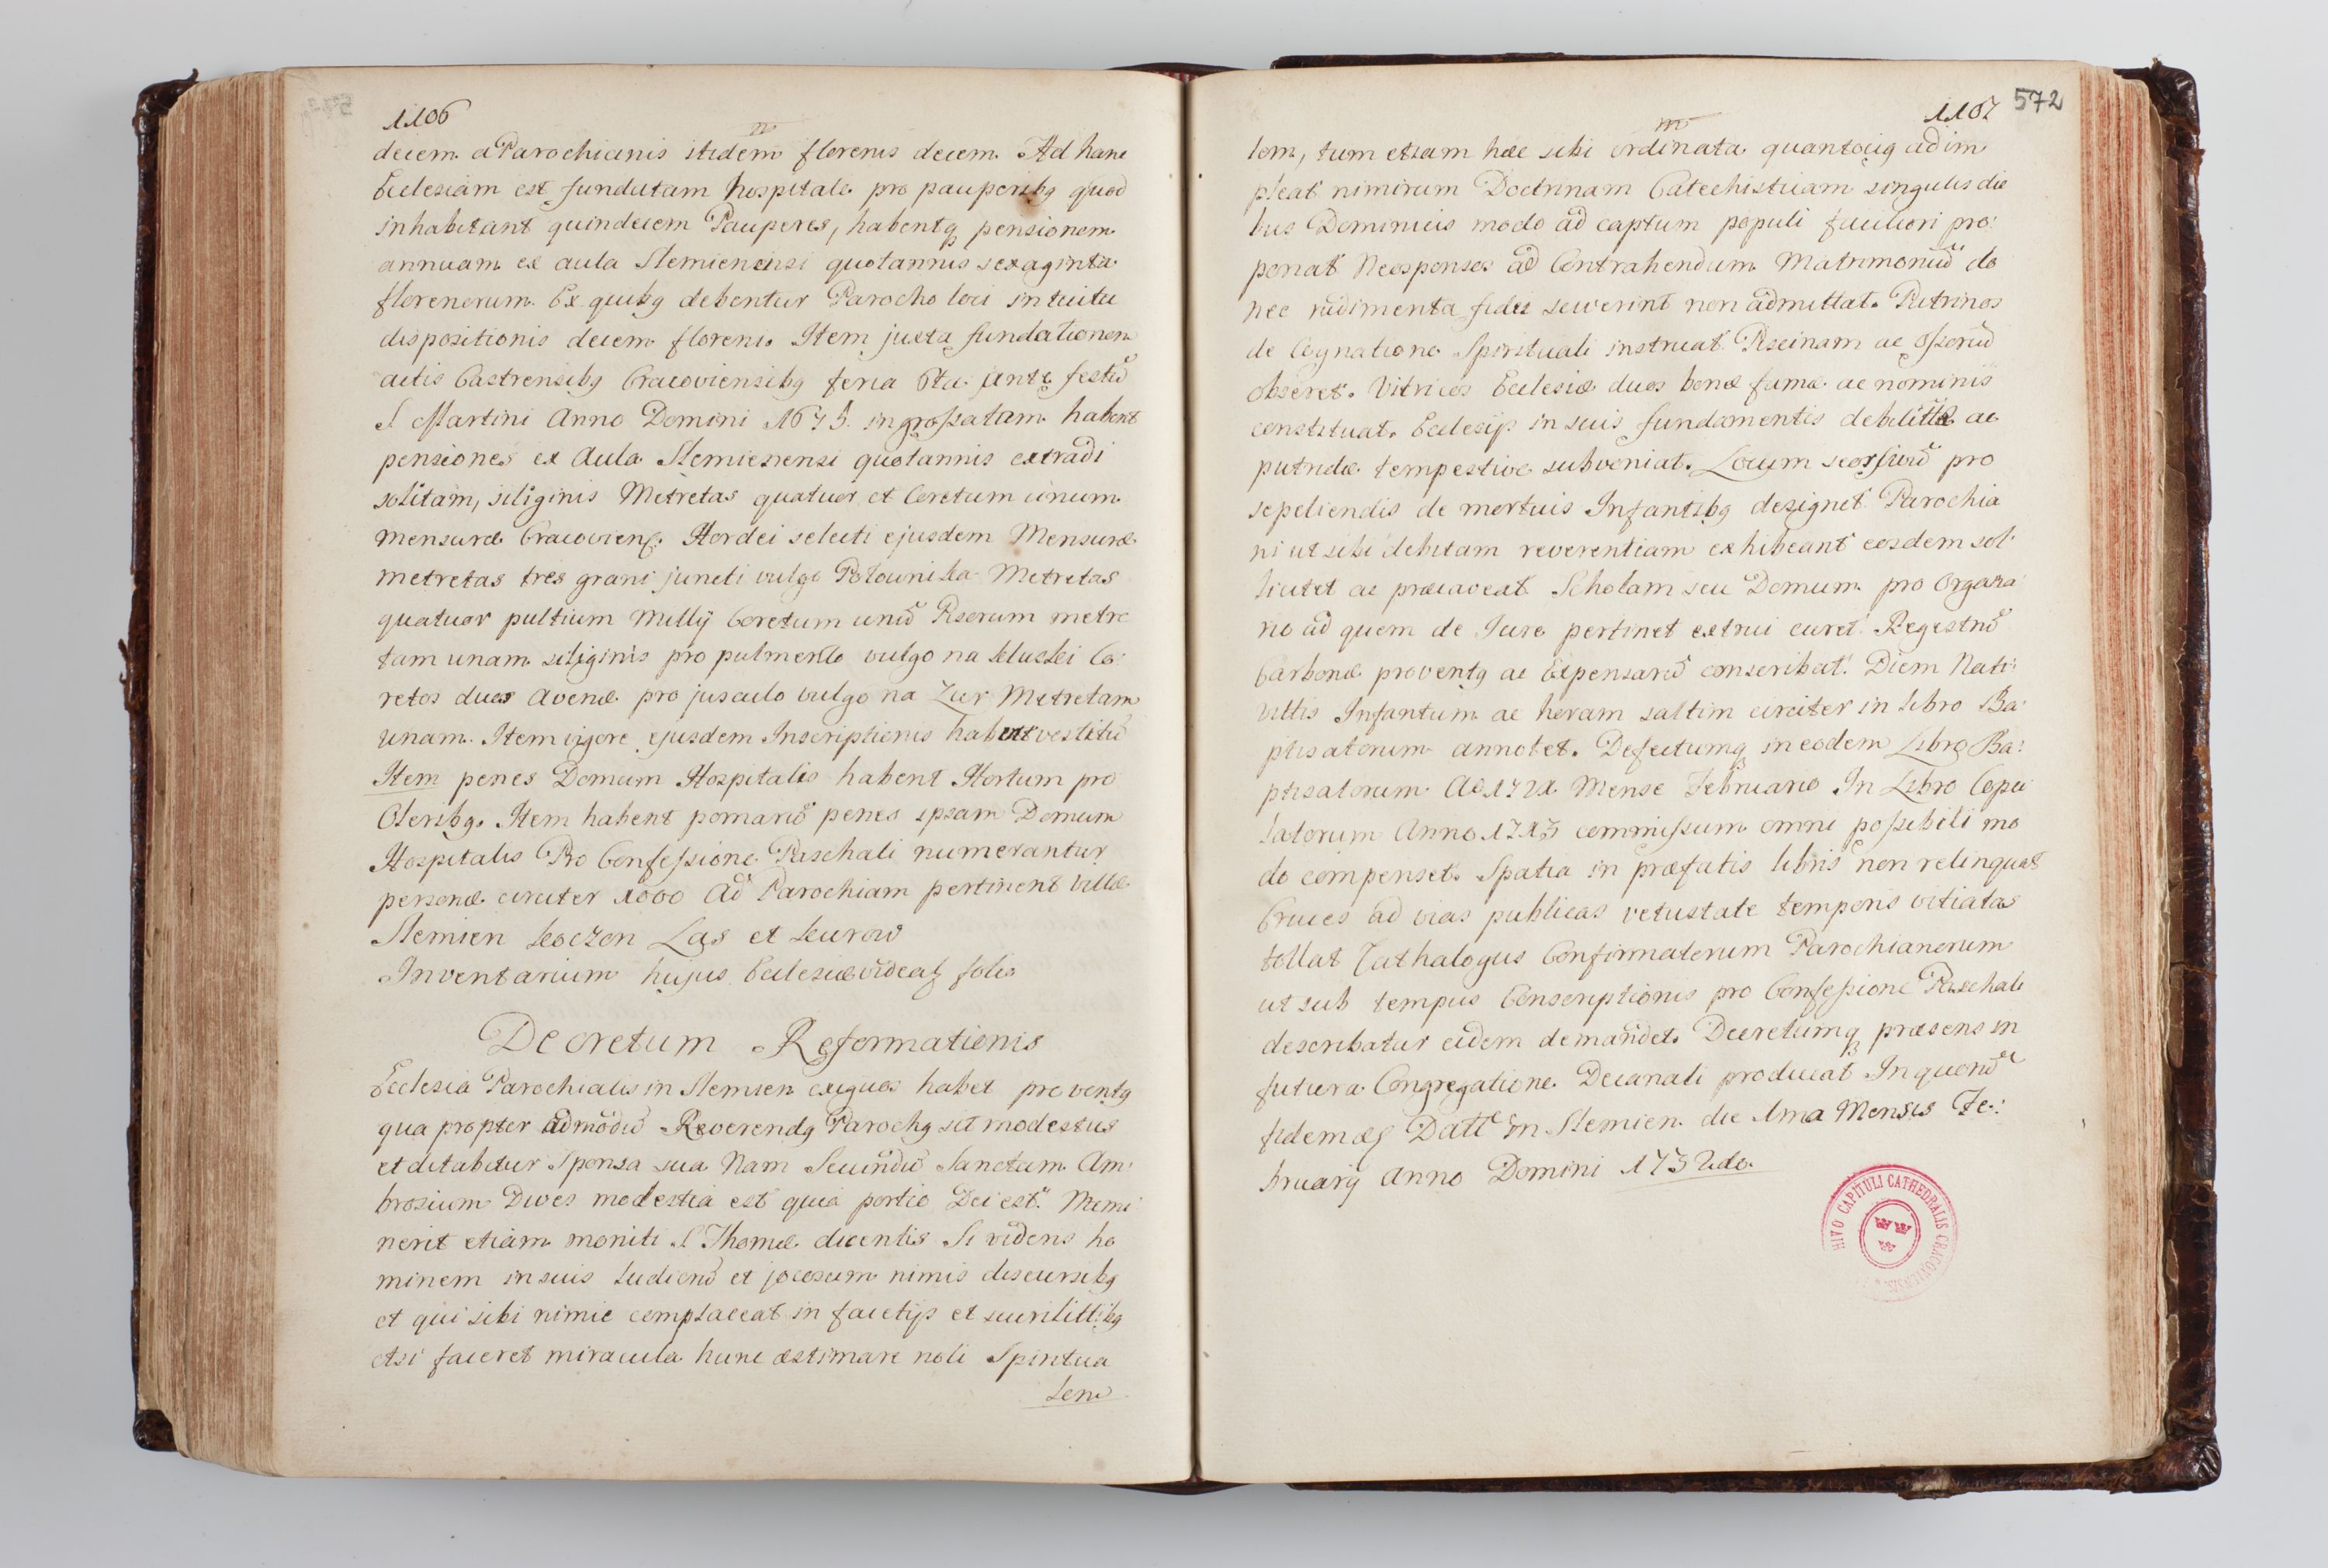 1106
decem a Parochianis itidem florenis decem. Ad hanc
Ecclesiam est fundatam hospitale pro pauperibq quod
inhabitant quindecem Pauperes, habentq pensionem
annuam ex aula Slemienensi quotannis sexaginta
florenorum. Ex quibq debentur Parocho loci intuitu
dispositionis decem floreni. Item juxta fundationem
actis Castrensibq Cracoviensibq feria 6ta ante festū
S Martini Anno Domini 1675. ingrossatam habent
pensiones ex Aula Slemienensi quotannis extradi
solitam, siliginis Metretas quatuor et Coretum unum
mensuræ Cracoviens. Hordei selecti ejusdem Mensuræ
metretas tres grani juncti vulgo Polownika Metretas
quatuor pultium Millij Coretum unū Pisorum metre
tam unam siliginis pro pulmento vulgo na kluski Co:
retos duos Avenæ pro jusculo vulgo na Zur Metretam
unam. Item vigore ejusdem Inscriptionis habent vestitū
Item penes Domum Hospitalis habent Hortum pro
Oleribq. Item habent pomariū penes ipsam Domum
Hospitalis Pro Confessione Paschali numerantur
personæ circiter 1000 Ad Parochiam pertinent villæ
Slemien Koczon Las et Kurow
Inventarium hujus Ecclesiæ videatʒ folio
Decretum Reformationis
Ecclesia Parochialis in Slemien exiguos habet proventq
qua propter admodū Reverendq Parochq sit modestus
et ditabitur Sponsa sua Nam Secundū Sanctum Am:
brosium Dives modestia est quia portio Dei est. Memi
nerit etiam moniti S Thomæ dicentis Si videris ho
minem in suis ludicrū et jocosum nimis discursibq
et qui sibi nimie complaceat in facetijs et scurilittibq
etsi faceret miracula hunc æstimare noli Spiritua
lem
1107 572
lem, tum etiam hæc sibi ordinata quantociq adim
pleat nimirum Doctrinam Catechisticam singulis die
bus Dominicis modo ad captum populi faciliori pro:
ponat Neosponsos ad Contrahendum Matrimoniū do
nec rudimenta fidei sciverint non admittat. Patrinos
de Cognatione Spirituali instruat. Piscinam ac Ossoriū
obseret. Vitricos Ecclesiæ duos bonæ famæ ac nominis
constituat. Ecclesijs in suis fundamentis debilittæ ac
putridæ tempestive subveniat. Locum seorsivū pro
sepeliendis de mortuis Infantibq designet Parochia
ni ut sibi debitam reverentiam exhibeant eosdem sol:
licitet ac præcaveat Scholam seu Domum pro Organa
rio ad quem de Jure pertinet extrui curet. Regestrū
Carbonæ proventq ac Expensarū conscribat. Diem Nati:
vittis Infantum ac horam saltim circiter in libro Ba:
ptisatorum annotet. Defectumq in eodem Libro Ba:
ptisatorum Ao 1721 Mense Februario In Libro Copu
latorum Anno 1715 commissum omni possibili mo
do compenset. Spatia in præfatis libris non relinquat
Cruces ad vias publicas vetustate temporis vitiatas
tollat Cathalogus Confirmatorum Parochianorum
ut sub tempus Conscriptionis pro Confessione Paschali
describatur eidem demandet. Decretumq præsens in
futura Congregatione Decanali producat In quorū
fidem Datt In Slemien die 1ma Mensis Fe:
bruarij Anno Domini 1732do.
HIVO CAPITULI CATHEDRALIS CRACOVIENSIS